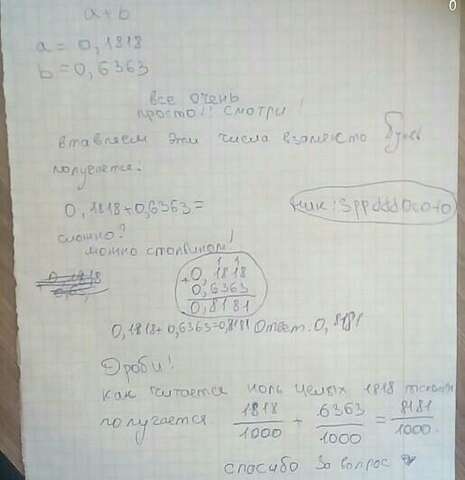 0
a + b
a = 0,1818
b = 0,6363
все очень
просто!! смотри!
втавляем эти числа взаместо букв
получается:
0,1818+0,6363=
Ник:
сложно?
можно столбиком!
0,1818
+ 0,1818
0,6363
0,8181
0,1818+0,6363=0,8181 Ответ: 0,8181
Дроби!
как читается ноль целых 1818
получается 1818/1000 + 6363/1000 = 8181/1000.
спосибо за вопрос